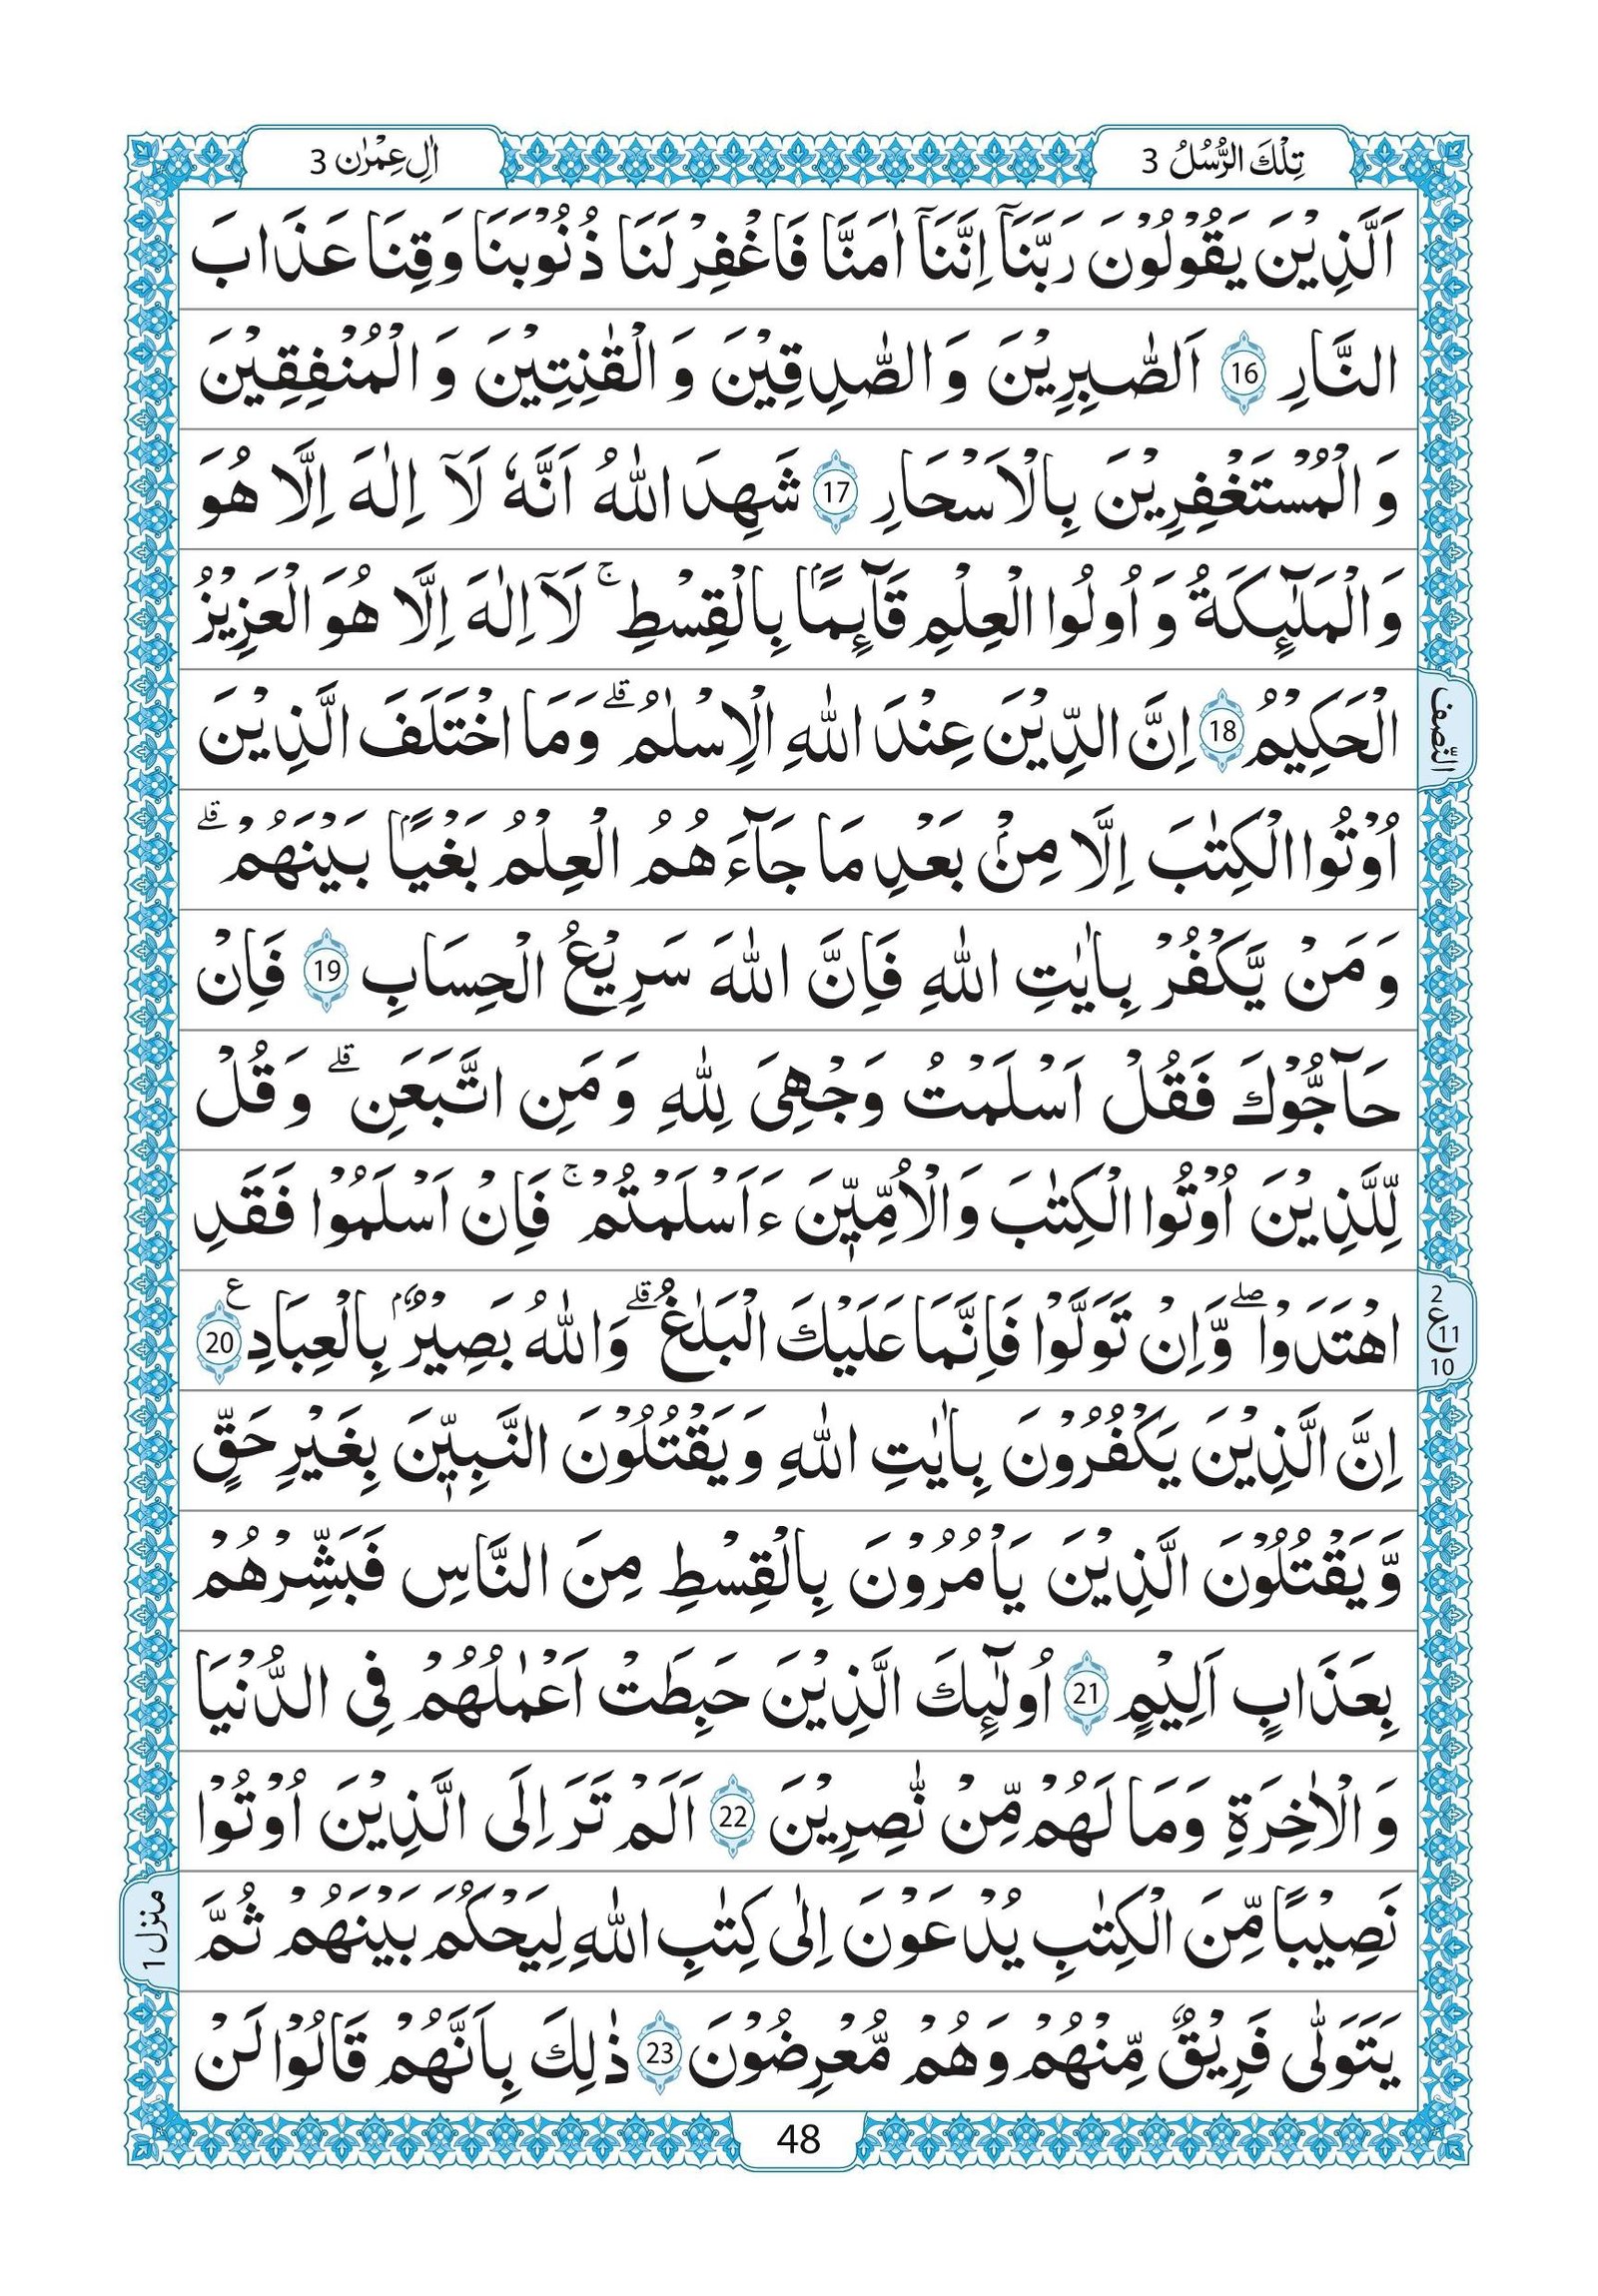 تِلْكَ الرُّسُلُ 3
اٰلِ عِمْرٰن 3
اَلَّذِيْنَ يَقُوْلُوْنَ رَبَّنَاۤ اِنَّنَاۤ اٰمَنَّا فَاغْفِرْ لَنَا ذُنُوْبَنَا وَقِنَا عَذَابَ
النَّارِ 16 اَلصّٰبِرِيْنَ وَالصّٰدِقِيْنَ وَالْقٰنِتِيْنَ وَالْمُنْفِقِيْنَ
وَالْمُسْتَغْفِرِيْنَ بِالْاَسْحَارِ 17 شَهِدَ اللّٰهُ اَنَّهٗ لَاۤ اِلٰهَ اِلَّا هُوَ
وَالْمَلٰٓئِكَةُ وَاُولُوا الْعِلْمِ قَآئِمًاۢ بِالْقِسْطِ ۚ لَاۤ اِلٰهَ اِلَّا هُوَ الْعَزِيْزُ
الْحَكِيْمُ 18 اِنَّ الدِّيْنَ عِنْدَ اللّٰهِ الْاِسْلٰمُ ۗ وَمَا اخْتَلَفَ الَّذِيْنَ
النّصف
اُوْتُوا الْكِتٰبَ اِلَّا مِنْۢ بَعْدِ مَا جَآءَهُمُ الْعِلْمُ بَغْيًاۢ بَيْنَهُمْ ۗ
وَمَنْ يَّكْفُرْ بِاٰيٰتِ اللّٰهِ فَاِنَّ اللّٰهَ سَرِيْعُ الْحِسَابِ 19 فَاِنْ
حَآجُّوْكَ فَقُلْ اَسْلَمْتُ وَجْهِىَ لِلّٰهِ وَمَنِ اتَّبَعَنِ ۗ وَقُلْ
لِّلَّذِيْنَ اُوْتُوا الْكِتٰبَ وَالْاُمِّيّٖنَ ءَاَسْلَمْتُمْ ۚ فَاِنْ اَسْلَمُوْا فَقَدِ
اهْتَدَوْا ۖ وَّاِنْ تَوَلَّوْا فَاِنَّمَا عَلَيْكَ الْبَلٰغُ ۗ وَاللّٰهُ بَصِيْرٌۢ بِالْعِبَادِ 20 ع
2 ع 11 10
اِنَّ الَّذِيْنَ يَكْفُرُوْنَ بِاٰيٰتِ اللّٰهِ وَيَقْتُلُوْنَ النَّبِيّٖنَ بِغَيْرِ حَقٍّ
وَّيَقْتُلُوْنَ الَّذِيْنَ يَاْمُرُوْنَ بِالْقِسْطِ مِنَ النَّاسِ فَبَشِّرْهُمْ
بِعَذَابٍ اَلِيْمٍ 21 اُولٰٓئِكَ الَّذِيْنَ حَبِطَتْ اَعْمٰلُهُمْ فِى الدُّنْيَا
وَالْاٰخِرَةِ وَمَا لَهُمْ مِّنْ نّٰصِرِيْنَ 22 اَلَمْ تَرَ اِلَى الَّذِيْنَ اُوْتُوْا
نَصِيْبًا مِّنَ الْكِتٰبِ يُدْعَوْنَ اِلٰى كِتٰبِ اللّٰهِ لِيَحْكُمَ بَيْنَهُمْ ثُمَّ
منزل 1
يَتَوَلّٰى فَرِيْقٌ مِّنْهُمْ وَهُمْ مُّعْرِضُوْنَ 23 ذٰلِكَ بِاَنَّهُمْ قَالُوْا لَنْ
48